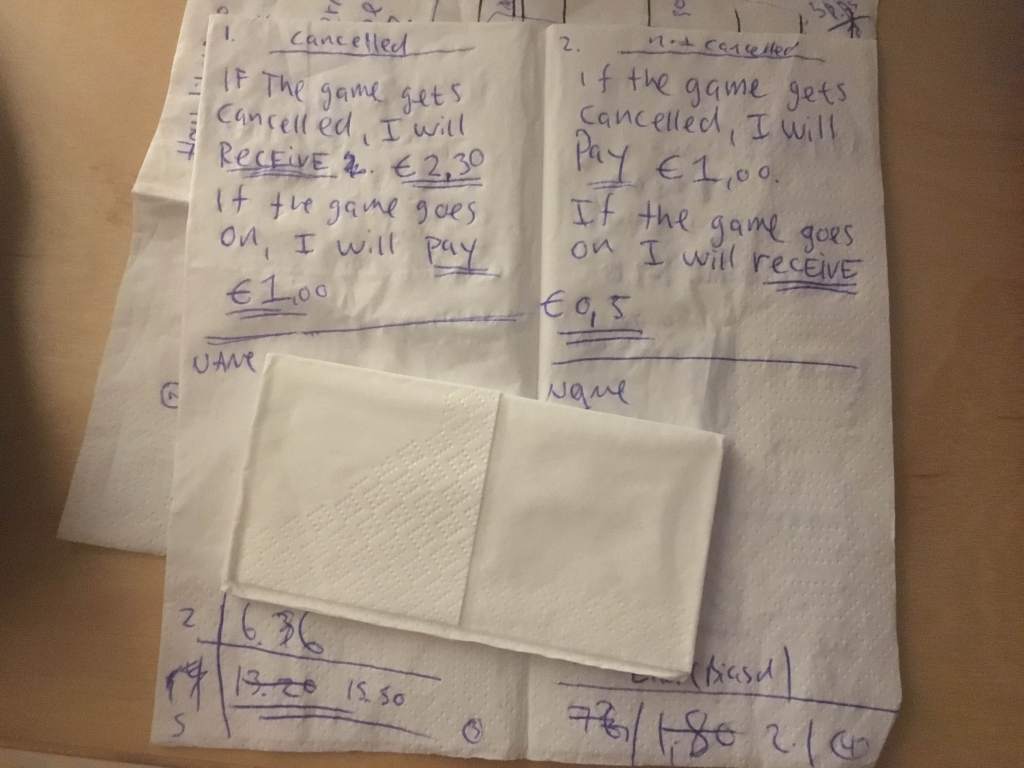 1. cancelled
IF The game gets
cancelled, I will
RECEIVE 2. € 2,30
If the game goes
on, I will pay
€ 1,00
NAME
2 6.36
5 13.20 15.50
2. not cancelled
if the game gets
cancelled, I will
Pay € 1,00.
If the game goes
on I will receIVE
€ 0,5
Name
(biased)
1,80 2. (4)